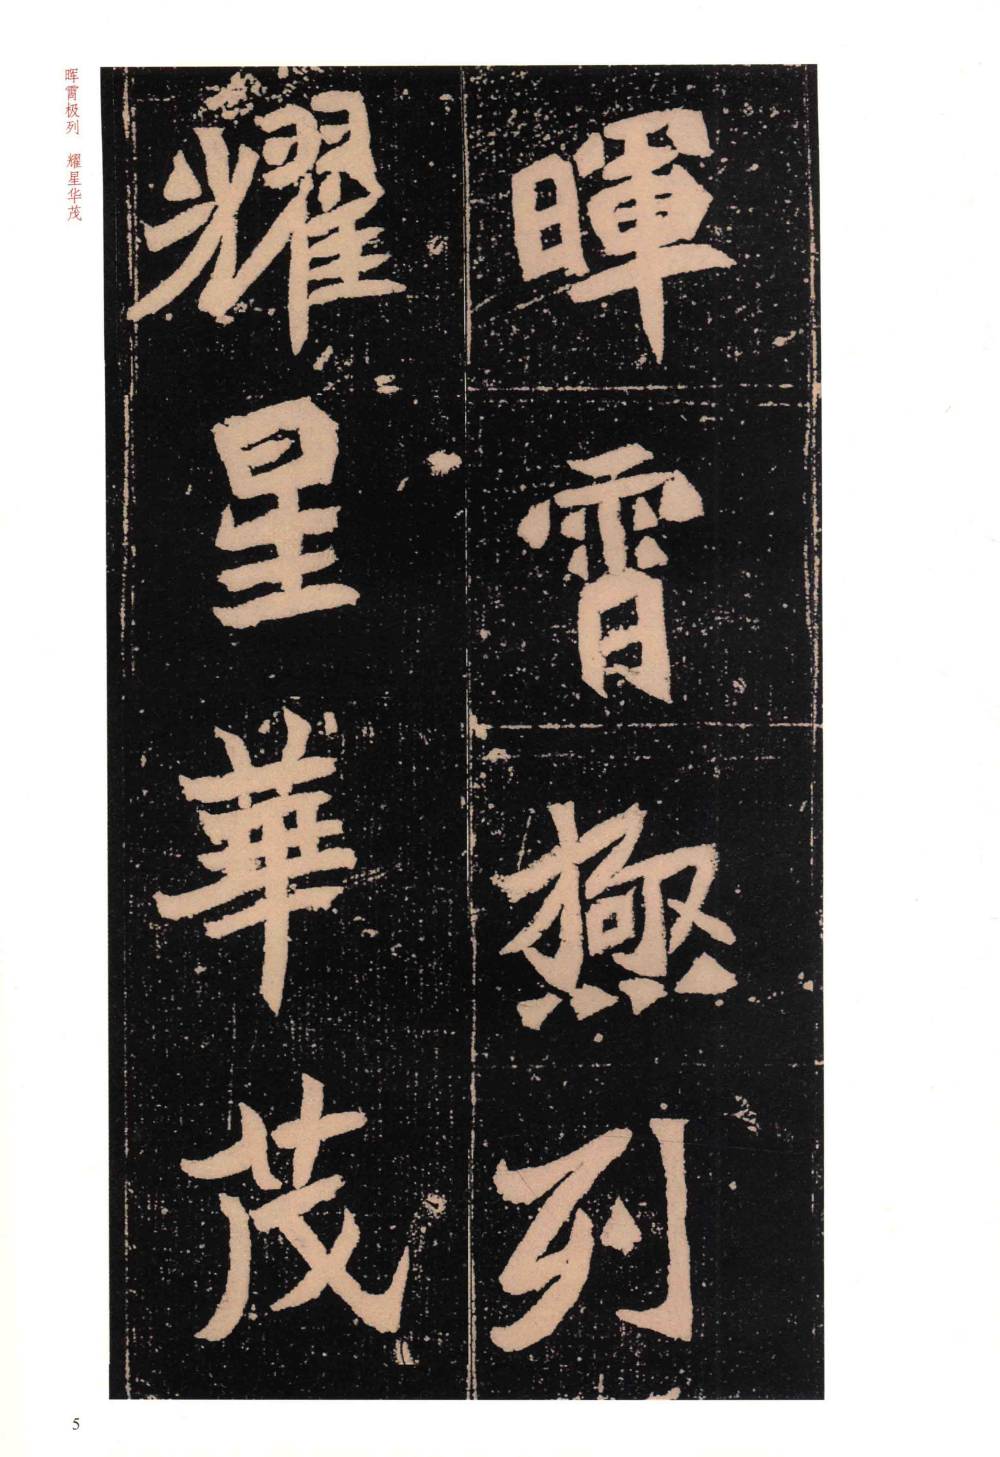 暉霄極列
耀星華茂
晖霄极列 耀星华茂
5